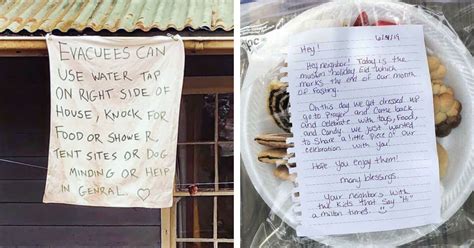 Evacuees can
use water tap
on right side of
house, knock for
food or shower
tent sites or dog
minding or help
in genral ♡
6/4/19
Hey!
Hey neighbor! Today is the
muslim holiday Eid which
marks the end of our month
of Fasting.
On this day we get dressed up
go to Prayer and come back
and celebrate with toys, Food,
and Candy. We just wanted
to share a little piece o' our
celebration with you!
Hope you enjoy them!
many blessings
Your neighbors with
the kids that say "Hi"
a million times. :)